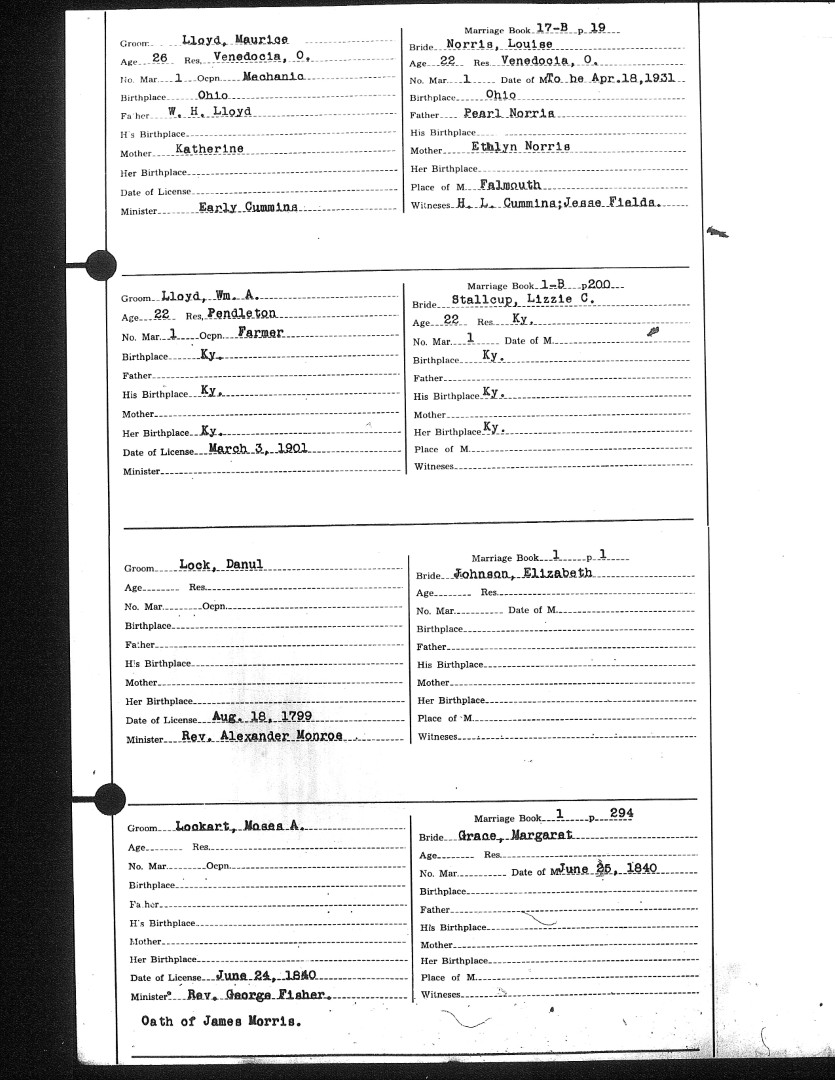 Groom Lloyd, Maurice
Age 26 Res. Venedocia, O.
No. Mar 1 Ocpn. Mechanic
Birthplace Ohio
Father W. H. Lloyd
His Birthplace
Mother Katherine
Her Birthplace
Date of License
Minister Early Cummins
Marriage Book 17-B p 19
Bride Norris, Louise
Age 22 Res Venedocia, O.
No. Mar 1 Date of M To be Apr.18,1931
Birthplace Ohio
Father Pearl Norris
His Birthplace
Mother Ethlyn Norris
Her Birthplace
Place of M. Falmouth
Witneses H. L. Cummins;Jesse Fields.
Groom Lloyd, Wm. A.
Age 22 Res. Pendleton
No. Mar 1 Ocpn. Farmer
Birthplace Ky.
Father
His Birthplace Ky.
Mother
Her Birthplace Ky.
Date of License March 3, 1901
Minister
Marriage Book 1-B p200
Bride Stallcup, Lizzie C.
Age 22 Res Ky.
No. Mar 1 Date of M.
Birthplace Ky.
Father
His Birthplace Ky.
Mother
Her Birthplace Ky.
Place of M.
Witneses
Groom Lock, Danul
Age Res.
No. Mar Ocpn.
Birthplace
Father
His Birthplace
Mother
Her Birthplace
Date of License Aug. 18, 1799
Minister Rev. Alexander Monroe
Marriage Book 1 p 1
Bride Johnson, Elizabeth
Age Res.
No. Mar. Date of M.
Birthplace
Father
His Birthplace
Mother
Her Birthplace
Place of M.
Witneses
Groom Lockart, Moses A.
Age Res.
No. Mar Ocpn.
Birthplace
Father
His Birthplace
Mother
Her Birthplace
Date of License June 24, 1840
Minister Rev. George Fisher.
Oath of James Morris.
Marriage Book 1 p. 294
Bride Grace, Margaret
Age Res.
No. Mar. Date of M June 25, 1840
Birthplace
Father
His Birthplace
Mother
Her Birthplace
Place of M.
Witneses